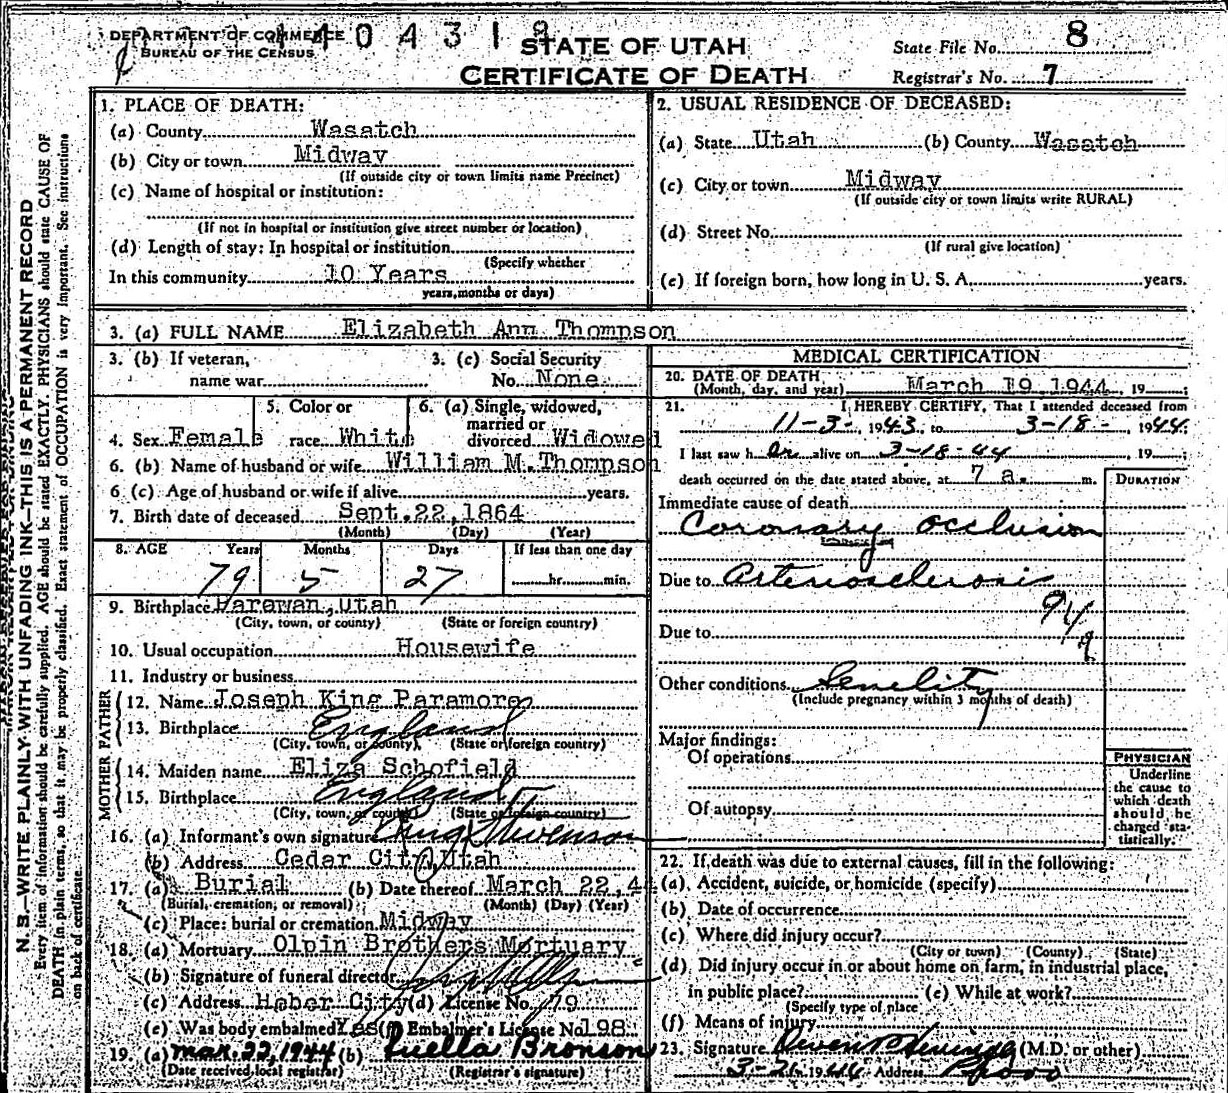 DEPARTMENT OF COMMERCE
BUREAU OF THE CENSUS
STATE OF UTAH
CERTIFICATE OF DEATH
State File No. 8
Registrar's No. 7
N. B.—WRITE PLAINLY WITH UNFADING INK—THIS IS A PERMANENT RECORD
Every item of information should be carefully supplied. AGE should be stated EXACTLY. PHYSICIANS should state CAUSE OF
DEATH in plain terms, so that it may be properly classified. Exact statement of OCCUPATION is very important. See instructions
on back of certificate.
1. PLACE OF DEATH:
(a) County Wasatch
(b) City or town Midway
(If outside city or town limits name Precinct)
(c) Name of hospital or institution:
(If not in hospital or institution give street number or location)
(d) Length of stay: In hospital or institution
(Specify whether
In this community 10 Years
years, months or days)
2. USUAL RESIDENCE OF DECEASED:
(a) State Utah (b) County Wasatch
(c) City or town Midway
(If outside city or town limits write RURAL)
(d) Street No.
(If rural give location)
(e) If foreign born, how long in U. S. A. years.
3. (a) FULL NAME Elizabeth Ann Thompson
3. (b) If veteran, 3. (c) Social Security
name war No. None
4. Sex Female 5. Color or race White 6. (a) Single, widowed, married or divorced Widowed
6. (b) Name of husband or wife William M. Thompson
6 (c). Age of husband or wife if alive years.
7. Birth date of deceased Sept. 22, 1864
(Month) (Day) (Year)
8. AGE Years Months Days If less than one day
79 5 27 hr. min.
9. Birthplace Parowan, Utah
(City, town, or county) (State or foreign country)
10. Usual occupation Housewife
11. Industry or business
FATHER
12. Name Joseph King Paramore
13. Birthplace England
(City, town, or county) (State or foreign country)
MOTHER
14. Maiden name Eliza Schofield
15. Birthplace England
(City, town, or county) (State or foreign country)
16. (a) Informant's own signature King Stevenson
(b) Address Cedar City Utah
17. (a) Burial (b) Date thereof March 22, 44
(Burial, cremation, or removal) (Month) (Day) (Year)
(c) Place: burial or cremation Midway
18. (a) Mortuary Olpin Brothers Mortuary
(b) Signature of funeral director
(c) Address Heber City (d) License No. 79
(e) Was body embalmed Yes (f) Embalmer's License No 198
19. (a) Mar. 22, 1944 (b) Luella Bronson
(Date received local registrar) (Registrar's signature)
MEDICAL CERTIFICATION
20. DATE OF DEATH
(Month, day, and year) March 19 1944, 19
21. I HEREBY CERTIFY, That I attended deceased from
11-3-, 1943, to 3-18-, 1944.
I last saw her alive on 3-18-44, 19
death occurred on the date stated above, at 7 a. m.
DURATION
Immediate cause of death
Coronary occlusion
Due to Arteriosclerosis
Due to
Other conditions Senelity
(Include pregnancy within 3 months of death)
Major findings:
Of operations
Of autopsy
PHYSICIAN
Underline
the cause to
which death
should be
charged sta-
tistically.
22. If death was due to external causes, fill in the following:
(a). Accident, suicide, or homicide (specify)
(b) Date of occurrence
(c) Where did injury occur?
(City or town) (County) (State)
(d) Did injury occur in or about home on farm, in industrial place,
in public place? (e) While at work?
(Specify type of place
(f) Means of injury
23. Signature (M.D. or other)
3-21 1944 Address Provo